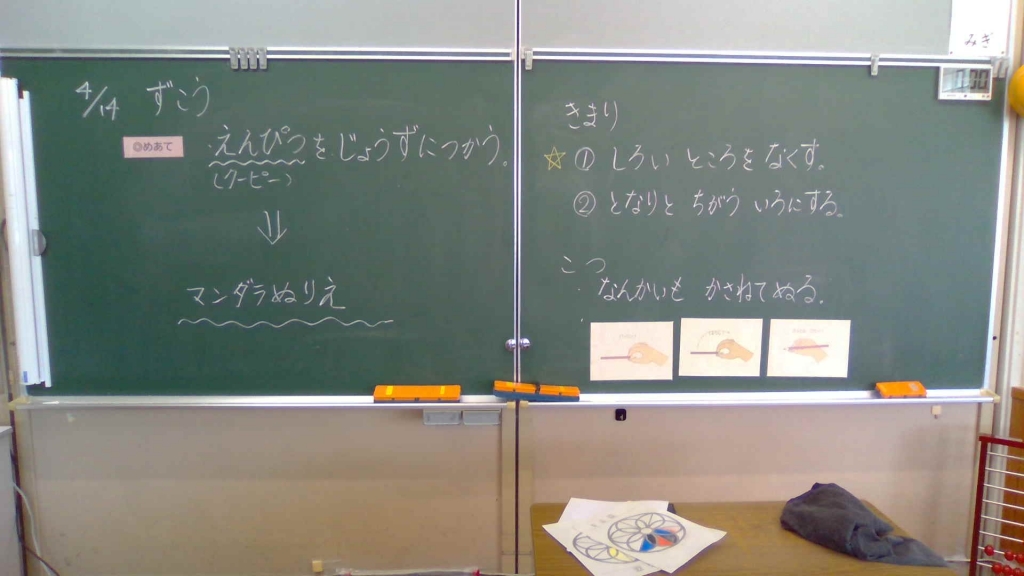 みぎ
4/14 ずこう
◎めあて
えんぴつをじょうずにつかう。
(クーピー)
マンダラぬりえ
きまり
☆① しろい ところを なくす。
② となりと ちがう いろにする。
こつ
・なんかいも かさねてぬる。